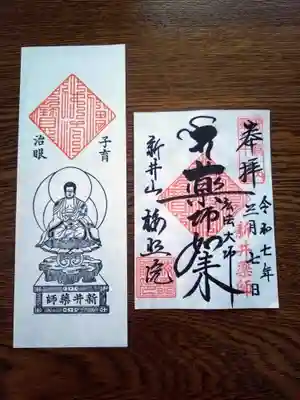 子育
治眼
新井薬師
奉拝
令和七年
三月七日
新井薬師
薬師如来
弘法大師
新井山
梅照院